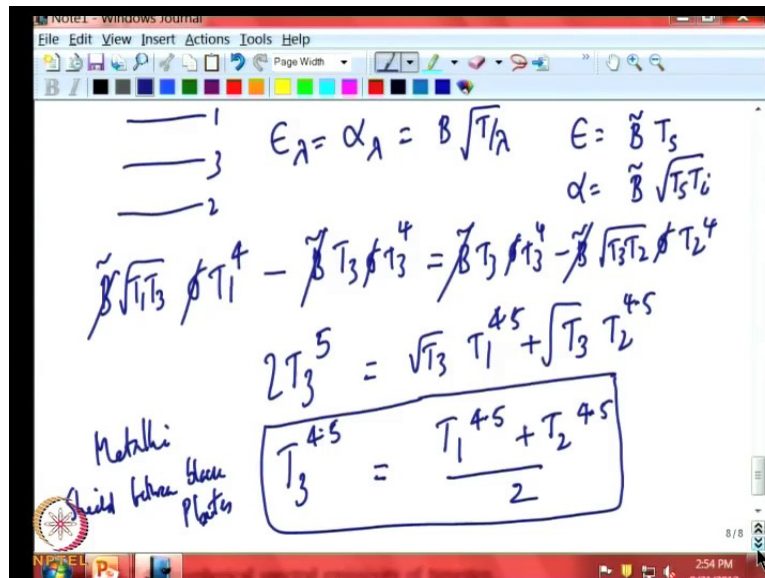 Note1 - Windows Journal
File Edit View Insert Actions Tools Help
Page Width
B I
1
3
2
ϵ_λ = α_λ = B √(T/λ)
ϵ = B̃ T_s
α = B̃ √(T_s T_i)
B̃ √(T_1 T_3) σ T_1^4 - B̃ T_3 σ T_3^4 = B̃ T_3 σ T_3^4 - B̃ √(T_3 T_2) σ T_2^4
2T_3^5 = √T_3 T_1^4.5 + √T_3 T_2^4.5
T_3^4.5 = (T_1^4.5 + T_2^4.5) / 2
Metallic
Shield between black
Plates
8/8
NPTEL
2:54 PM